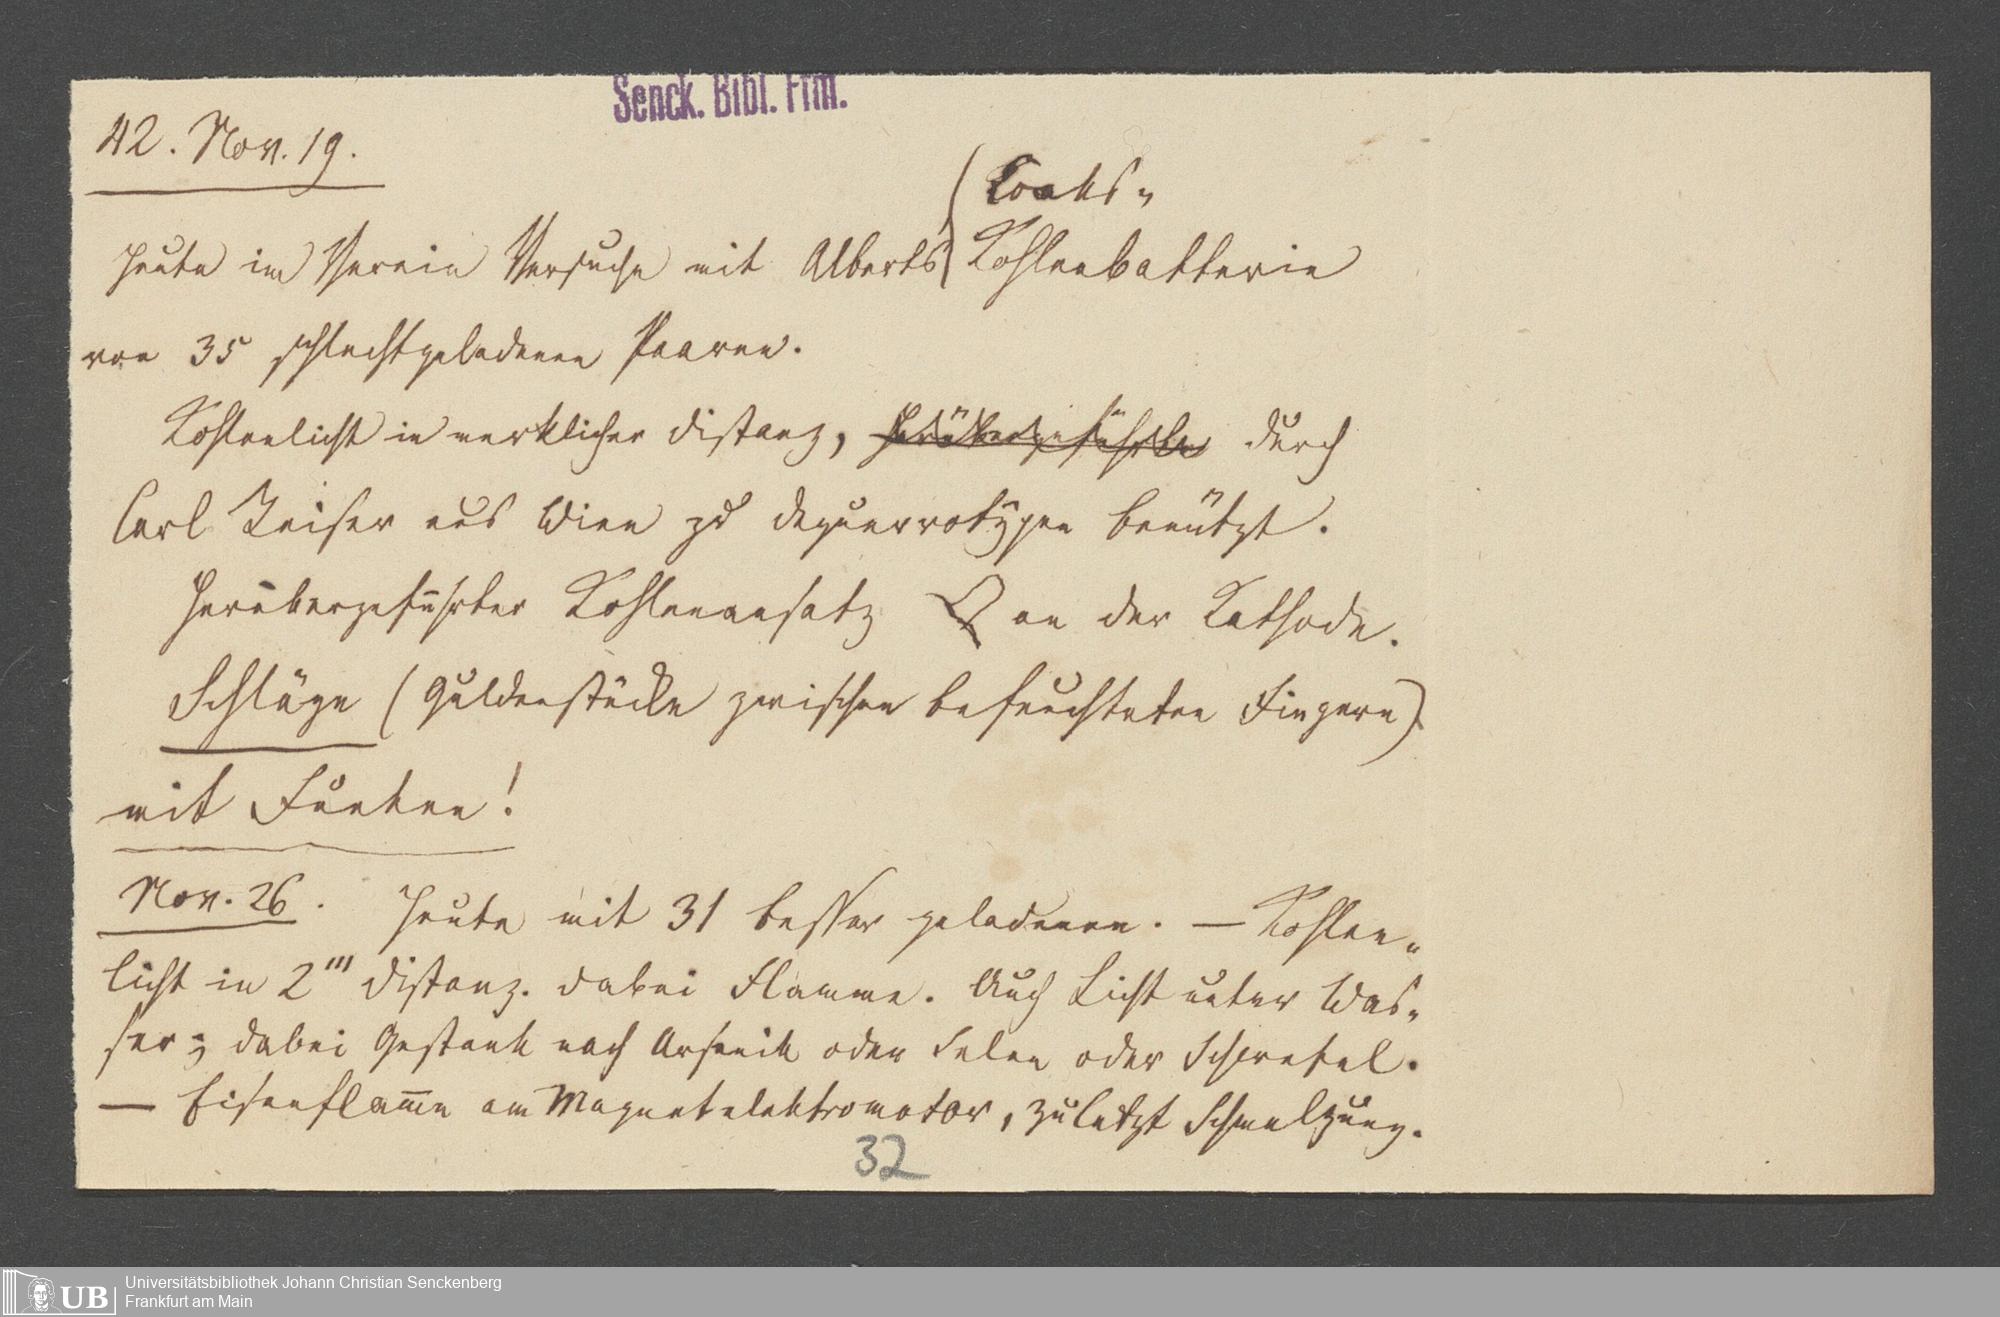 Senck. Bibl. Ffm.
42. Nov. 19.
(Coaks-
Heute im Verein Versuche mit Alberts Kohlenbatterie
von 35 schlechtgeladenen Paaren.
Kohlenlicht in merklicher Distanz, herübergeführte durch
Carl Reiser aus Wien zu daguerrotypen benützt.
Herübergeführter Kohlenansatz an der Kathode.
Schläge (Guldenstücke zwischen befeuchteten Fingern)
mit Funken!
Nov. 26. Heute mit 31 besser geladenen. — Kohlen-
licht in 2''' Distanz. dabei Flamme. Auch Licht unter Was-
ser; dabei Gestank nach Arsenik oder Selen oder Schwefel.
— Eisenflam̅e am Magnetelektromotor, zuletzt Schmelzung.
32
UB
Universitätsbibliothek Johann Christian Senckenberg
Frankfurt am Main